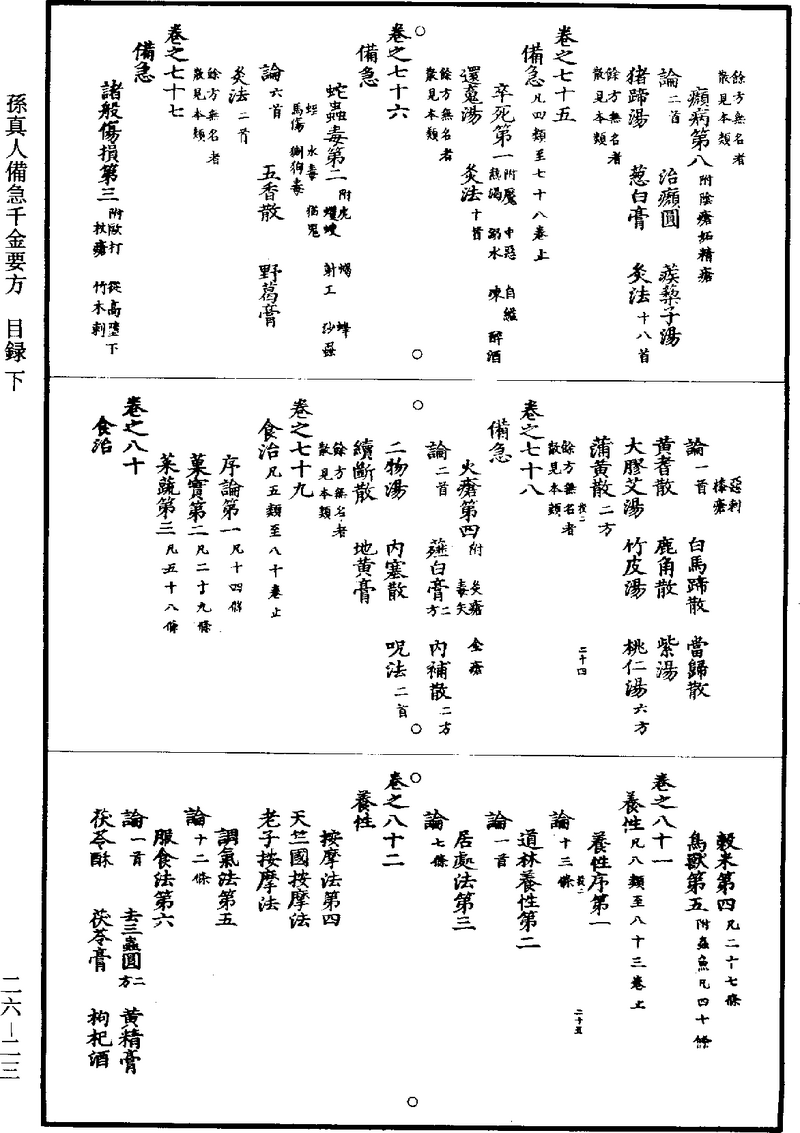 孫真人備急千金要方　目録下
二六—二三
餘方無名者
散見本類
癩病第八　附陰瘡妬精瘡
論二首　治癩圓　蒺藜子湯
猪蹄湯　葱白膏　灸法十八首
餘方無名者
散見本類
卷之七十五
備急　凡四類至七十八卷止
卒死第一　附魘　中惡　自縊
熱暍　溺水　凍　醉酒
還魂湯　灸法十首
餘方無名者
散見本類
卷之七十六
備急
蛇蟲毒第二　附虎　蝎　蜂
蠼螋　射工　沙蝨
蛭　水毒　猫鬼
馬傷　猘狗毒
論六首　五香散　野葛膏
灸法二首
餘方無名者
散見本類
卷之七十七
備急
諸般傷損第三　附歐打　從高墮下
杖瘡　竹木刺
惡刺
漆瘡
論一首　白馬蹄散　當歸散
黄耆散　鹿角散　紫湯
大膠艾湯　竹皮湯　桃仁湯六方
蒲黄散二方
餘方無名者
散見本類
二十四
卷之七十八
備急
火瘡第四　附　灸瘡　金瘡
毒矢
論二首　薤白膏二方　内補散二方
二物湯　内塞散　呪法二首
續斷散　地黄膏
餘方無名者
散見本類
卷之七十九
食治　凡五類至八十卷止
序論第一　凡十四條
菓實第二　凡二十九條
菜蔬第三　凡五十八條
卷之八十
食治
穀米第四　凡二十七條
鳥獸第五　附蟲魚凡四十條
卷之八十一
養性　凡八類至八十三卷止
養性序第一
論十三條
二十五
道林養性第二
論一首
居處法第三
論七條
卷之八十二
養性
按摩法第四
天竺國按摩法
老子按摩法
調氣法第五
論十二條
服食法第六
論一首　去三蟲圓二方　黄精膏
茯苓酥　茯苓膏　枸杞酒